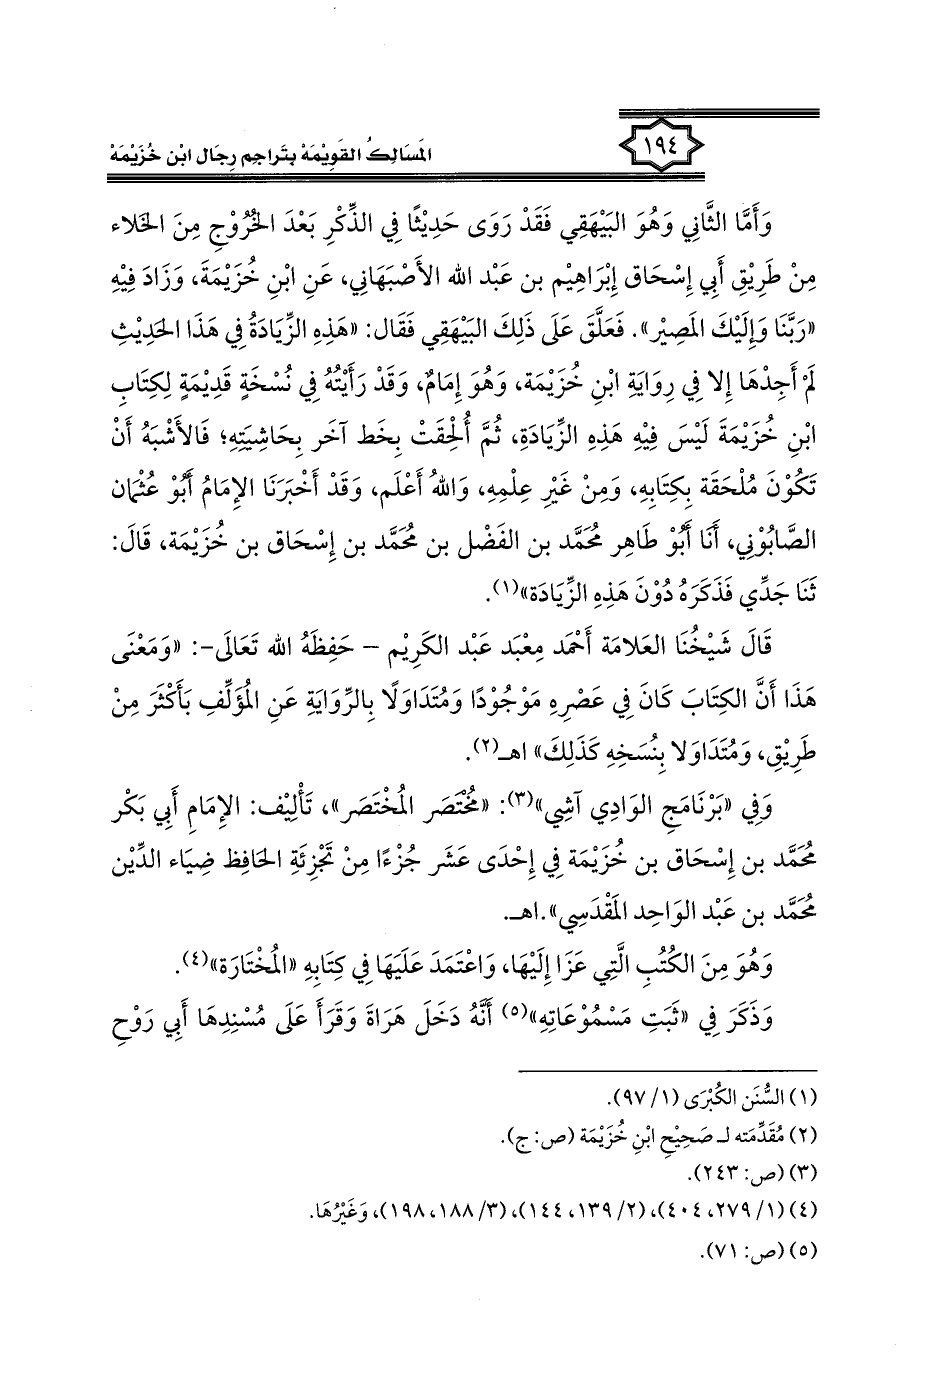 ١٩٤
المَسَالِكُ القَوِيْمَة بِتَراجِم رِجَال ابْن خُزَيْمَة
وَأَمَّا الثَّانِي وَهُوَ البَيْهَقِي فَقَدْ رَوَى حَدِيْثًا فِي الذِّكْرِ بَعْدَ الخُرُوْجِ مِنَ الخَلاء
مِنْ طَرِيْقِ أَبِي إِسْحَاق إِبْرَاهِيْم بن عَبْد الله الأَصْبَهَانِي، عَنِ ابْنِ خُزَيْمَةَ، وَزَادَ فِيْهِ
«رَبَّنَا وَإِلَيْكَ المَصِيْر». فَعَلَّقَ عَلَى ذَلِكَ البَيْهَقِي فَقَالَ: «هَذِهِ الزِّيَادَةُ فِي هَذَا الحَدِيْثِ
لَمْ أَجِدْهَا إِلا فِي رِوَايَةِ ابْنِ خُزَيْمَة، وَهُوَ إِمَامٌ، وَقَدْ رَأَيْتُهُ فِي نُسْخَةٍ قَدِيْمَةٍ لِكِتَابِ
ابْنِ خُزَيْمَةَ لَيْسَ فِيْهِ هَذِهِ الزِّيَادَةِ، ثُمَّ أُلْحِقَتْ بِخَط آخَر بِحَاشِيَتِهِ؛ فَالأَشْبَهُ أَنْ
تَكُوْنَ مُلْحَقَة بِكِتَابِهِ، وَمِنْ غَيْرِ عِلْمِهِ، وَاللهُ أَعْلَم، وَقَدْ أَخْبَرَنَا الإِمَامُ أَبُوْ عُثْمَان
الصَّابُوْنِي، أَنَا أَبُوْ طَاهِر مُحَمَّد بن الفَضْل بن مُحَمَّد بن إِسْحَاق بن خُزَيْمَة، قَالَ:
ثَنَا جَدِّي فَذَكَرَهُ دُوْنَ هَذِهِ الزِّيَادَة»(١).
قَالَ شَيْخُنَا العَلامَة أَحْمَد مِعْبَد عَبْد الكَرِيْم – حَفِظَهُ الله تَعَالَى-: «وَمَعْنَى
هَذَا أَنَّ الكِتَابَ كَانَ فِي عَصْرِهِ مَوْجُوْدًا وَمُتَدَاوَلًا بِالرِّوَايَةِ عَنِ المُؤَلِّفِ بِأَكْثَرَ مِنْ
طَرِيْقٍ، وَمُتَدَاوَلا بِنُسَخِهِ كَذَلِكَ» اهـ(٢).
وَفِي «بَرْنَامَجِ الوَادِي آشِي»(٣): «مُخْتَصَر المُخْتَصَر»، تَأْلِيْف: الإِمَامِ أَبِي بَكْر
مُحَمَّد بن إِسْحَاق بن خُزَيْمَة فِي إِحْدَى عَشَر جُزْءًا مِنْ تَجْزِئَةِ الحَافِظ ضِيَاء الدِّيْن
مُحَمَّد بن عَبْد الوَاحِد المَقْدَسِي».اهـ.
وَهُوَ مِنَ الكُتُبِ الَّتِي عَزَا إِلَيْهَا، وَاعْتَمَدَ عَلَيْهَا فِي كِتَابِهِ «المُخْتَارَة»(٤).
وَذَكَرَ فِي «ثَبَتِ مَسْمُوْعَاتِهِ»(٥) أَنَّهُ دَخَلَ هَرَاةَ وَقَرَأَ عَلَى مُسْنِدِهَا أَبِي رَوْحِ
(١) السُّنَن الكُبْرَى (١/ ٩٧).
(٢) مُقَدِّمَته لـ صَحِيْحِ ابْنِ خُزَيْمَة (ص: ج).
(٣) (ص: ٢٤٣).
(٤) (١/ ٢٧٩، ٤٠٤)، (٢/ ١٣٩، ١٤٤)، (٣/ ١٨٨، ١٩٨)، وَغَيْرُهَا.
(٥) (ص: ٧١).